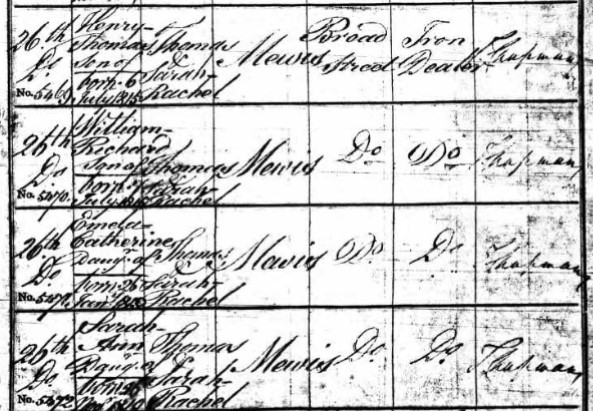 26th Henry- Thomas Thomas Mewis Broad Iron Chapman
Do Son of & Street Dealer
born 6 Sarah-
No. 5469 July 1815 Rachel
William-
26th Richard Thomas Mewis Do Do Chapman
Do Son of &
born Sarah-
No. 5470. July Rachel
Emela-
26th Catherine Thomas Mewis Do Do Chapman
Do Daugr. of &
born 26 Sarah-
No. 547 Jany. Rachel
Sarah-
26th Ann Thomas Mewis Do Do Chapman
Do Daugr. of &
born Sarah-
No. 5472 Rachel